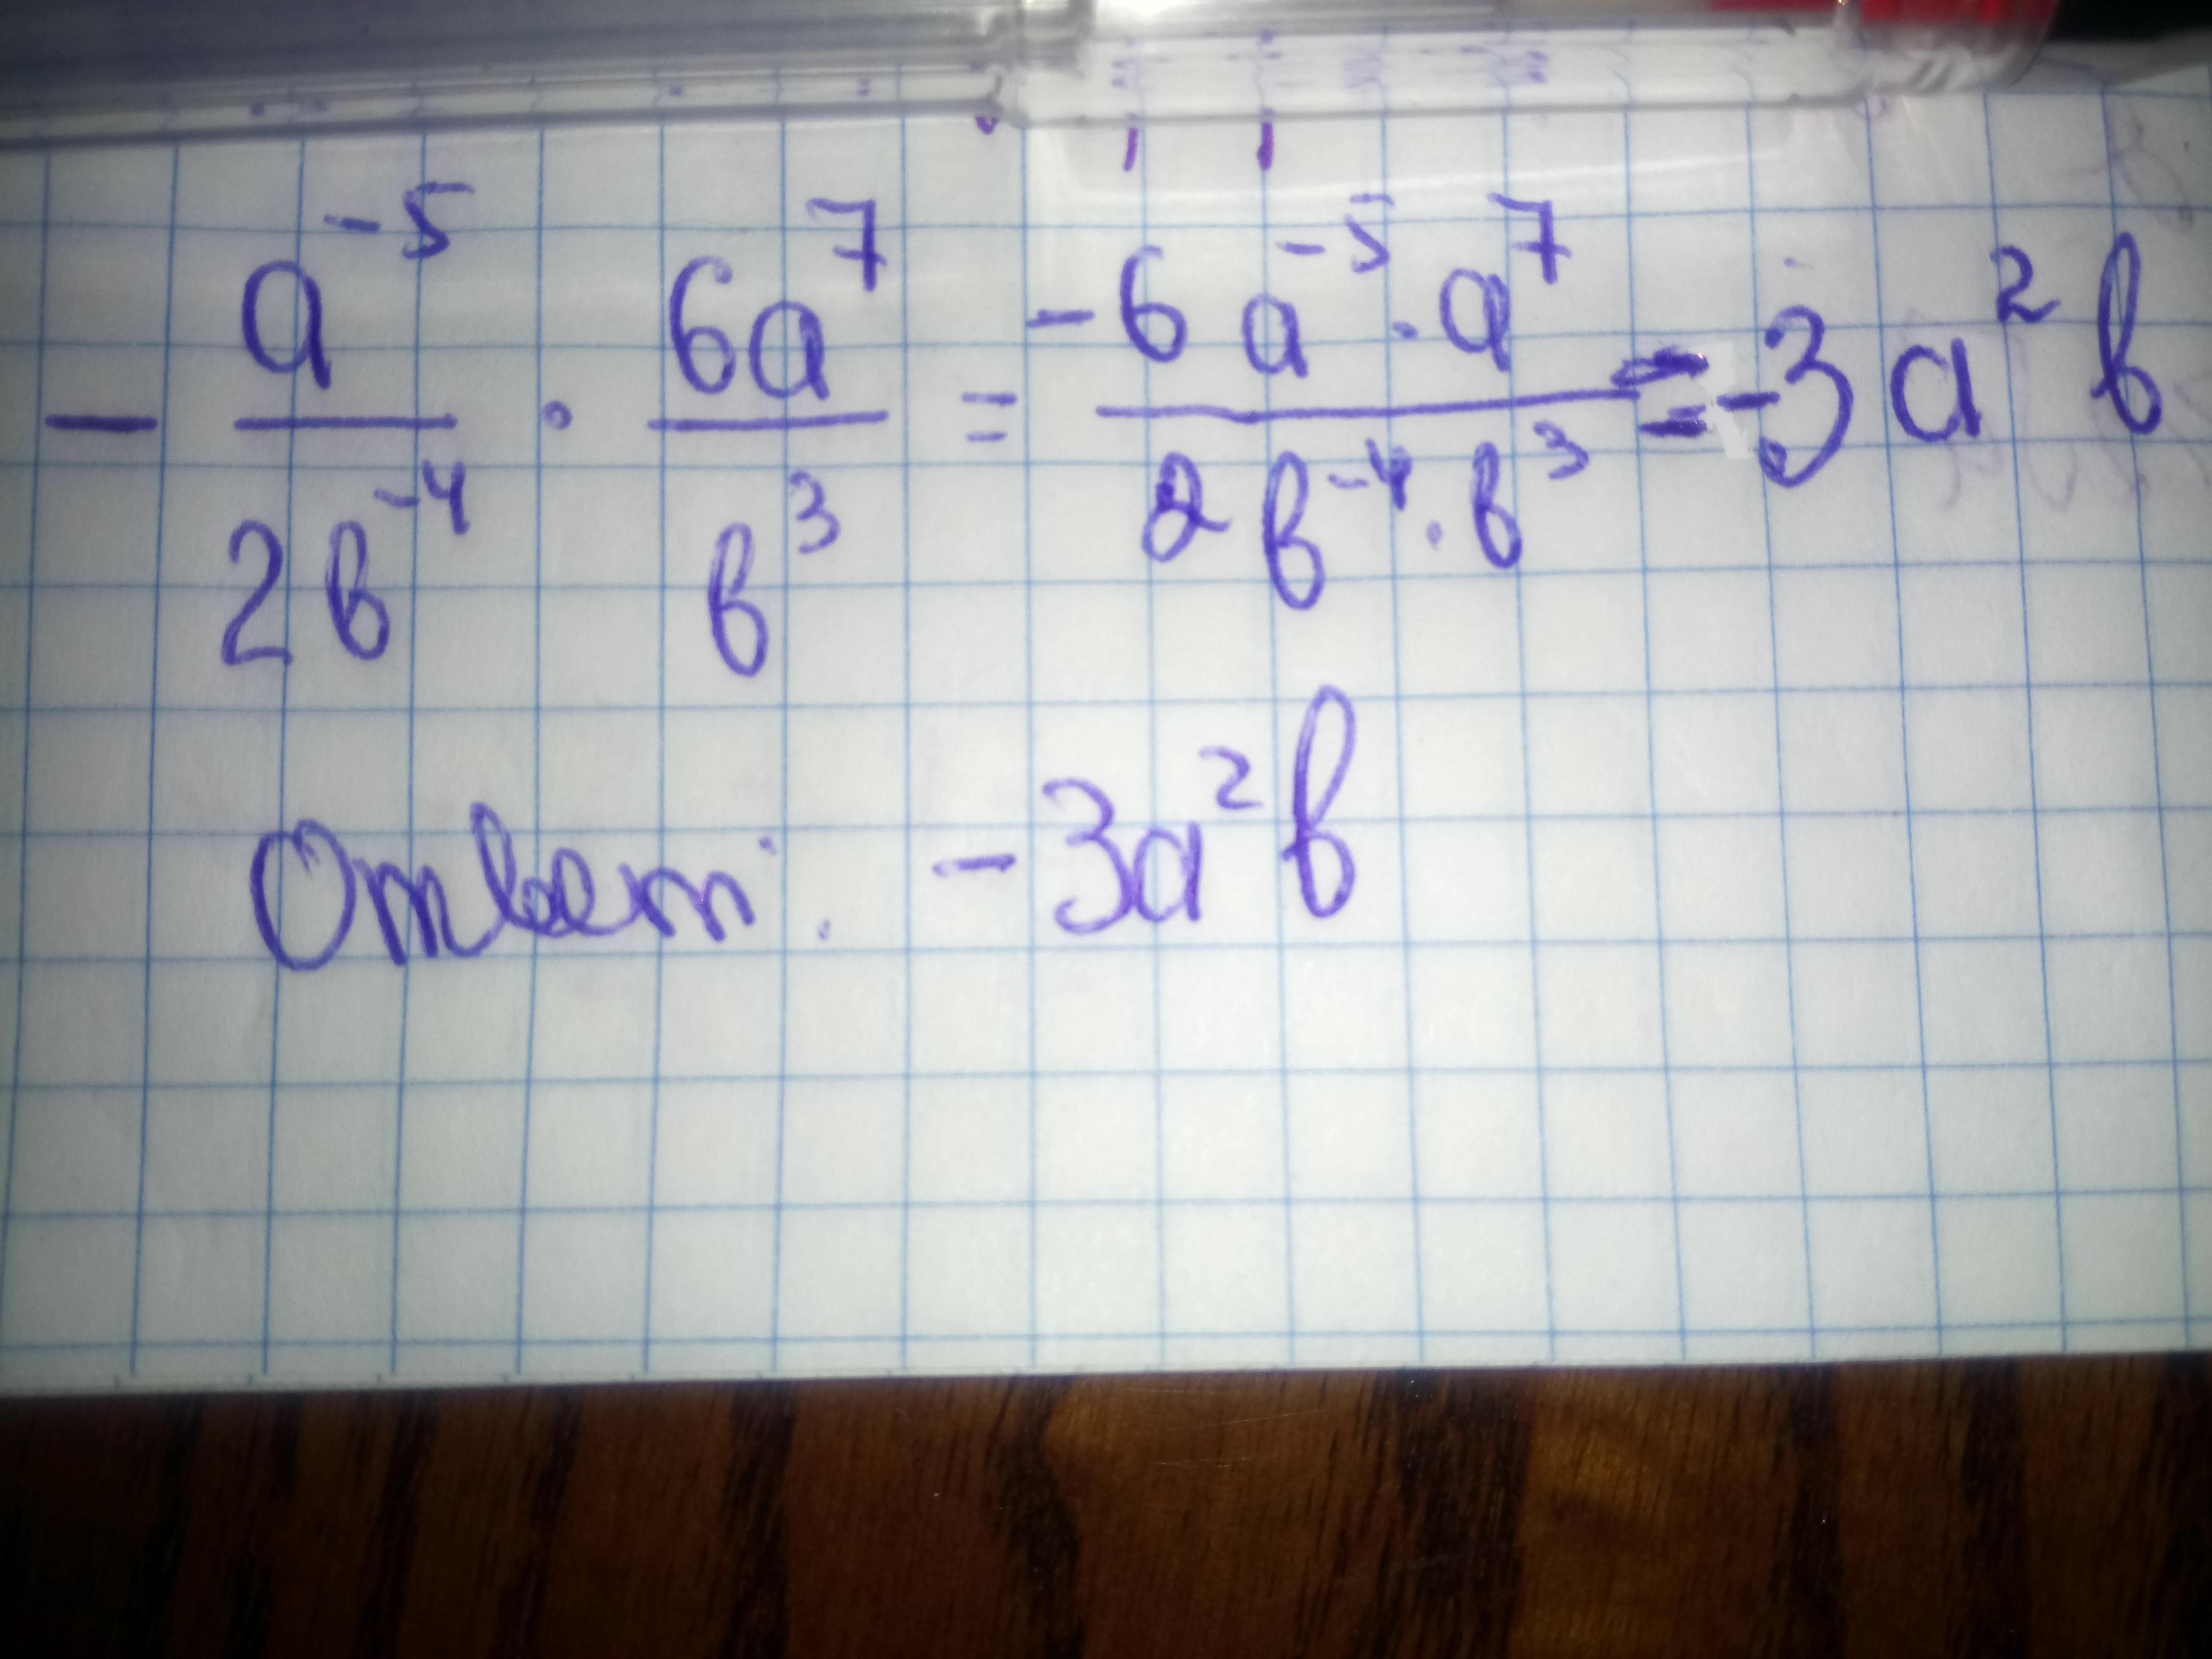 - a^-5/2в^-4 · 6a^7/в^3 = -6a^-5 · a^7/2в^-4 · в^3 = -3a^2в
Ответ: -3a^2в